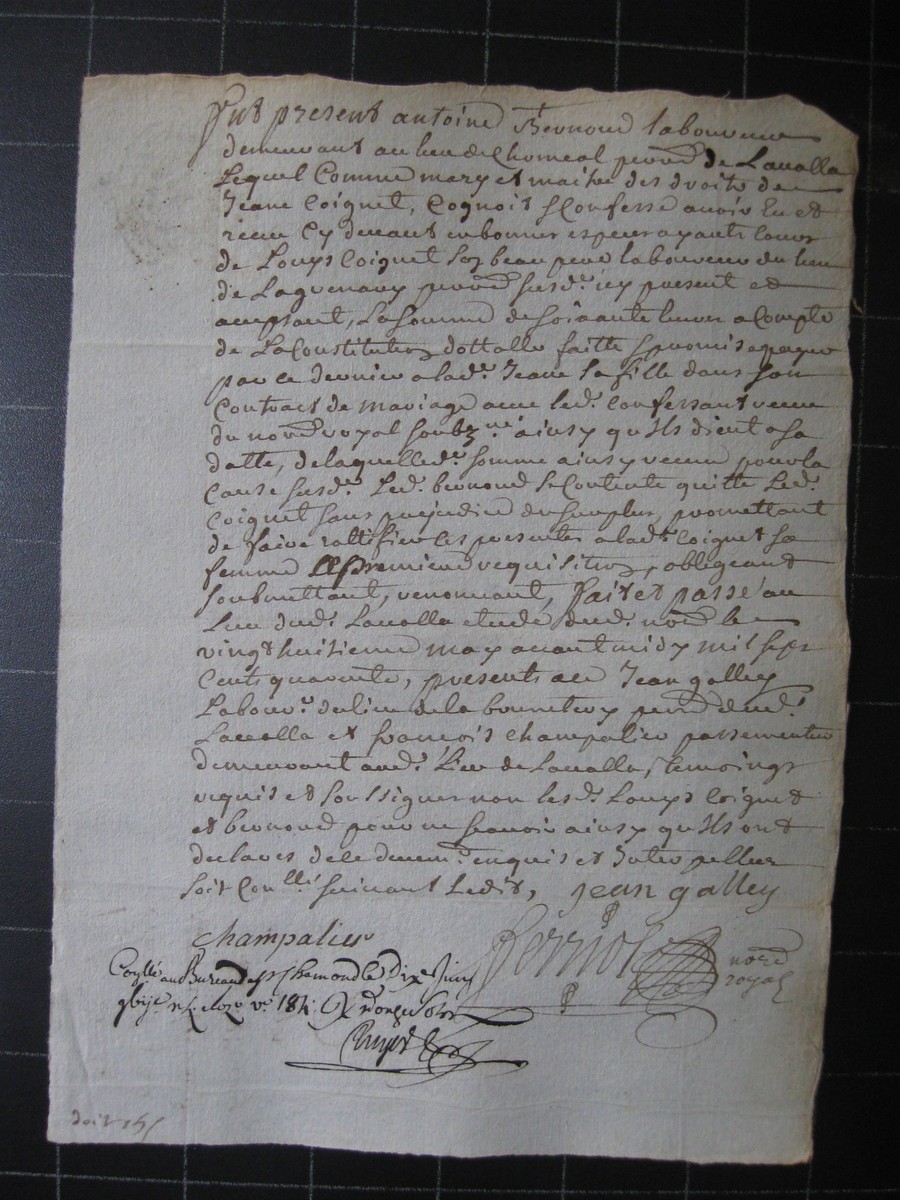 Fut present antoine Beronod laboureur
demeurant au lieu de Chomeal parr.e de Lavalla
Lequel Comme mary et maitre des droits de
Jeane Coignet, Cognois & Confesse avoir Eu et
receu Cy devant en bonnes especes ayants cours
de Louys Coignet son beau pere laboureur du lieu
de Laguenary parr.e susd.e icy present et
acceptant, La somme de soixante livres a Compte
de La Constitution dottalle faitte & promise payer
par ce dernier a lad.e Jeane sa fille dans son
Contract de mariage avec led.t confessant receu
du nor.e royal soubz.né ainsy qu'ils dient a sa
datte, de laquelle d.e somme ainsy receue pour la
Cause susd.e Led.t beronod se Contente quitte Led.t
Coignet sans prejudice du surplus, promettant
de faire rattifier ces presentes a lad.e Coignet sa
femme a premiere requisition, obligeant
soubmettant, renonceant, fait et passé au
Lieu dud.t Lavalla etude dud.t nor.e le
vingt huitieme may avant midy mil sept
Cents quarante, presents a ce Jean galley
Labour.r du lieu de la parr.e dud.t
Lavalla et françois Champalier passementier
demeurant aud.t Lieu de Lavalla, temoings
requis et soussignes non lesd.ts Louys Coignet
et beronod pour ne scavoir ainsy qu'ils ont
declares de ce deuem.t enquis et Interpelles
soit Con.llé suivant Ledit, jean galley
champalier
Ferriol nor.e
royal
Conllé au Bureau de St Chamond le Dix.e Juin
doit